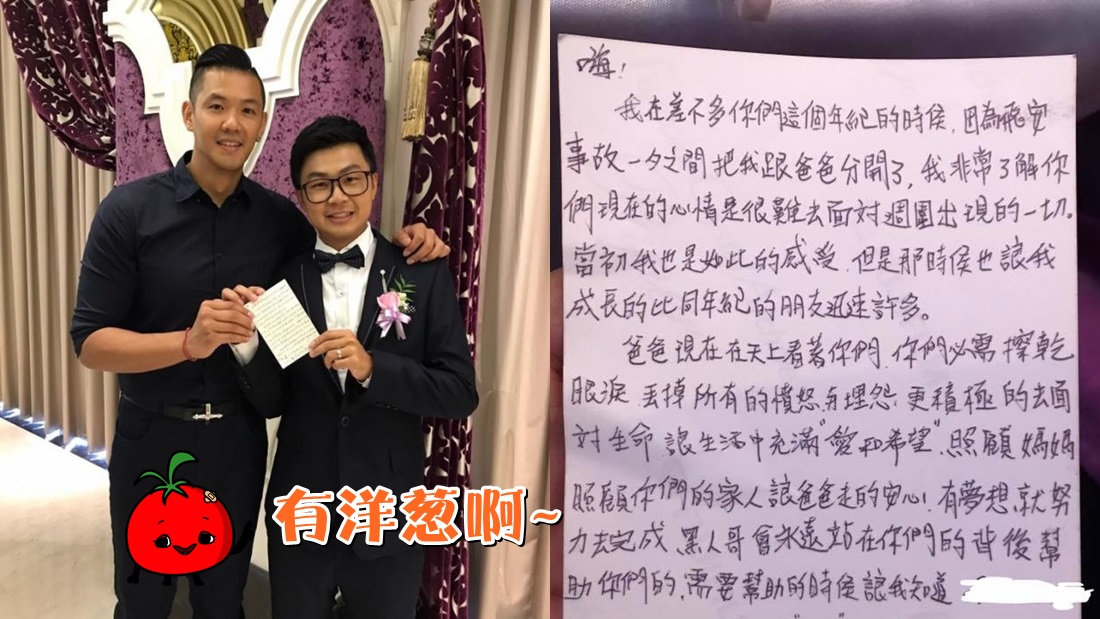 有洋葱啊~
嗨!
我在差不多你們這個年紀的時侯,因為飛安
事故一夕之間把我跟爸爸分開了,我非常了解你
們現在的心情是很難去面對週圍出現的一切。
當初我也是如此的感受.但是那時侯也讓我
成長的比同年紀的朋友迅速許多。
爸爸現在在天上看著你們.你們必需擦乾
眼淚 丟掉所有的憤怒.與埋怨 更積極的去面
對生命 讓生活中充滿"愛和希望".照顧媽媽
照顧你們的家人讓爸爸走的安心.有夢想.就努
力去完成.黑人哥會永遠站在你們的背後幫
助你們的.需要幫助的時侯讓我知道